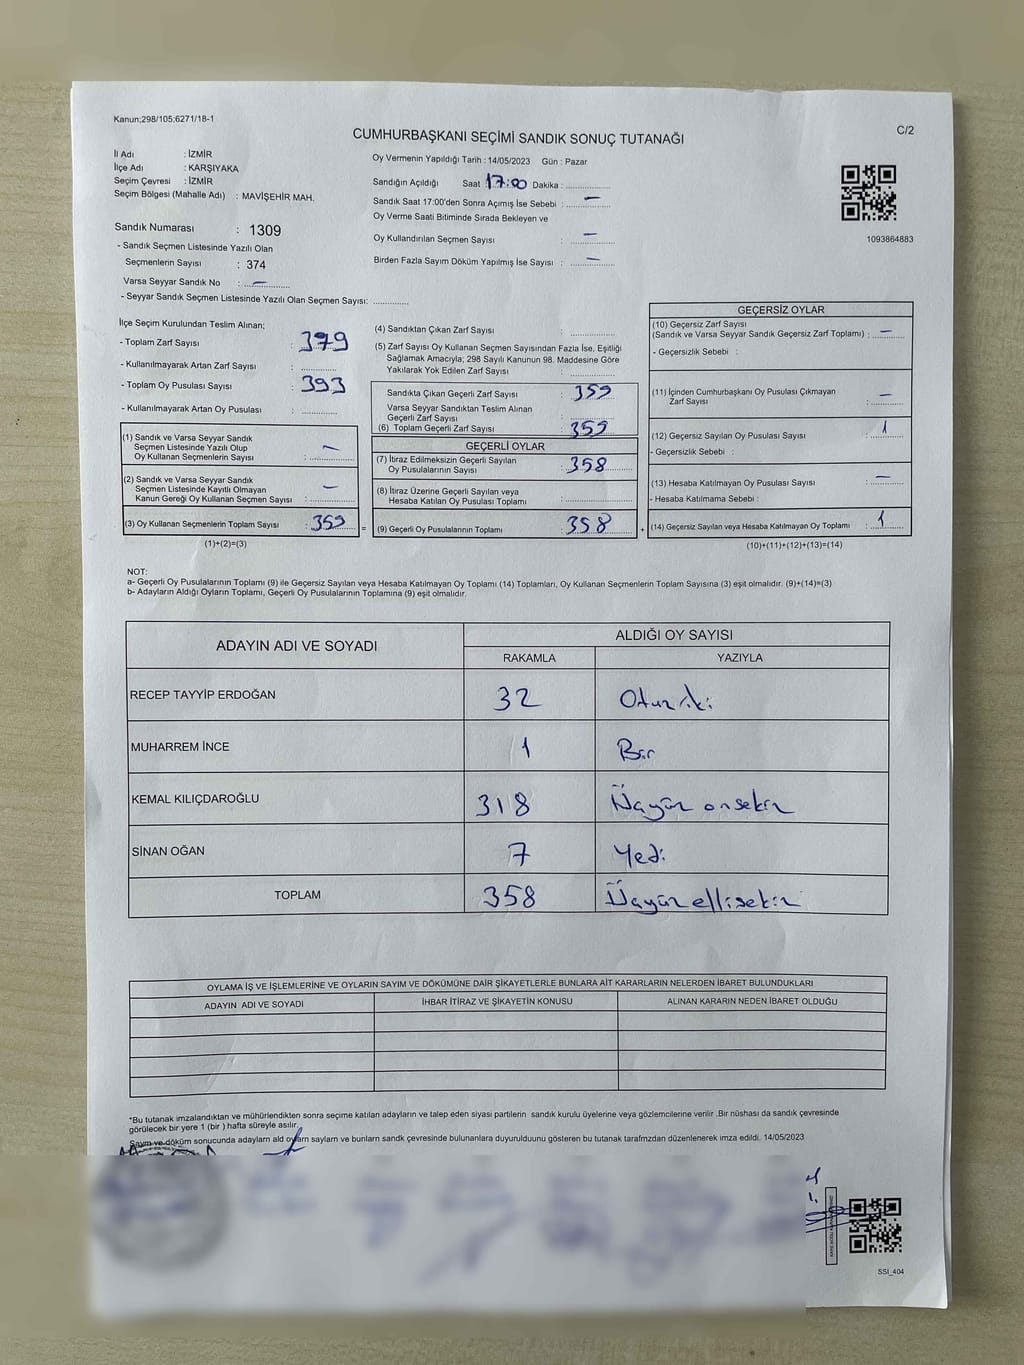 Kanun;298/105;6271/18-1
CUMHURBAŞKANI SEÇİMİ SANDIK SONUÇ TUTANAĞI
C/2
İl Adı : İZMİR
İlçe Adı : KARŞIYAKA
Seçim Çevresi : İZMİR
Seçim Bölgesi (Mahalle Adı) : MAVİŞEHİR MAH.
Sandık Numarası : 1309
- Sandık Seçmen Listesinde Yazılı Olan
Seçmenlerin Sayısı : 374
Varsa Seyyar Sandık No : —
- Seyyar Sandık Seçmen Listesinde Yazılı Olan Seçmen Sayısı: ............
Oy Vermenin Yapıldığı Tarih : 14/05/2023 Gün : Pazar
Sandığın Açıldığı Saat 17:00 Dakika : ............
Sandık Saat 17:00'den Sonra Açımış İse Sebebi : —
Oy Verme Saati Bitiminde Sırada Bekleyen ve
Oy Kullandırılan Seçmen Sayısı : —
Birden Fazla Sayım Döküm Yapılmış İse Sayısı : —
1093864883
İlçe Seçim Kurulundan Teslim Alınan;
- Toplam Zarf Sayısı : 379
- Kullanılmayarak Artan Zarf Sayısı : ............
- Toplam Oy Pusulası Sayısı : 393
- Kullanılmayarak Artan Oy Pusulası : ............
(1) Sandık ve Varsa Seyyar Sandık
Seçmen Listesinde Yazılı Olup
Oy Kullanan Seçmenlerin Sayısı : —
(2) Sandık ve Varsa Seyyar Sandık
Seçmen Listesinde Kayıtlı Olmayan
Kanun Gereği Oy Kullanan Seçmen Sayısı : —
(3) Oy Kullanan Seçmenlerin Toplam Sayısı : 359 =
(1)+(2)=(3)
(4) Sandıktan Çıkan Zarf Sayısı : ............
(5) Zarf Sayısı Oy Kullanan Seçmen Sayısından Fazla İse, Eşitliği
Sağlamak Amacıyla; 298 Sayılı Kanunun 98. Maddesine Göre
Yakılarak Yok Edilen Zarf Sayısı : ............
Sandıkta Çıkan Geçerli Zarf Sayısı : 359
Varsa Seyyar Sandıktan Teslim Alınan
Geçerli Zarf Sayısı : ............
(6) Toplam Geçerli Zarf Sayısı : 359
GEÇERLİ OYLAR
(7) İtiraz Edilmeksizin Geçerli Sayılan
Oy Pusulalarının Sayısı : 358
(8) İtiraz Üzerine Geçerli Sayılan veya
Hesaba Katılan Oy Pusulası Toplamı : ............
(9) Geçerli Oy Pusulalarının Toplamı : 358 +
GEÇERSİZ OYLAR
(10) Geçersiz Zarf Sayısı
(Sandık ve Varsa Seyyar Sandık Geçersiz Zarf Toplamı) : —
- Geçersizlik Sebebi :
(11) İçinden Cumhurbaşkanı Oy Pusulası Çıkmayan
Zarf Sayısı : —
(12) Geçersiz Sayılan Oy Pusulası Sayısı : 1
- Geçersizlik Sebebi :
(13) Hesaba Katılmayan Oy Pusulası Sayısı : —
- Hesaba Katılmama Sebebi :
(14) Geçersiz Sayılan veya Hesaba Katılmayan Oy Toplamı : 1
(10)+(11)+(12)+(13)=(14)
NOT:
a- Geçerli Oy Pusulalarının Toplamı (9) ile Geçersiz Sayılan veya Hesaba Katılmayan Oy Toplamı (14) Toplamları, Oy Kullanan Seçmenlerin Toplam Sayısına (3) eşit olmalıdır. (9)+(14)=(3)
b- Adayların Aldığı Oyların Toplamı, Geçerli Oy Pusulalarının Toplamına (9) eşit olmalıdır.
ADAYIN ADI VE SOYADI
ALDIĞI OY SAYISI
RAKAMLA YAZIYLA
RECEP TAYYİP ERDOĞAN 32 Otuz iki
MUHARREM İNCE 1 Bir
KEMAL KILIÇDAROĞLU 318 Üçyüz onsekiz
SİNAN OĞAN 7 Yedi
TOPLAM 358 Üçyüz ellisekiz
OYLAMA İŞ VE İŞLEMLERİNE VE OYLARIN SAYIM VE DÖKÜMÜNE DAİR ŞİKAYETLERLE BUNLARA AİT KARARLARIN NELERDEN İBARET BULUNDUKLARI
ADAYIN ADI VE SOYADI İHBAR İTİRAZ VE ŞİKAYETİN KONUSU ALINAN KARARIN NEDEN İBARET OLDUĞU
*Bu tutanak imzalandıktan ve mühürlendikten sonra seçime katılan adayların ve talep eden siyasi partilerin sandık kurulu üyelerine veya gözlemcilerine verilir .Bir nüshası da sandık çevresinde
görülecek bir yere 1 (bir ) hafta süreyle asılır.
Sayım ve döküm sonucunda adayların ald oyların sayların ve bunların sandk çevresinde bulunanlara duyurulduunu gösteren bu tutanak tarafmzdan düzenlenerek imza edildi. 14/05/2023
SSI_404